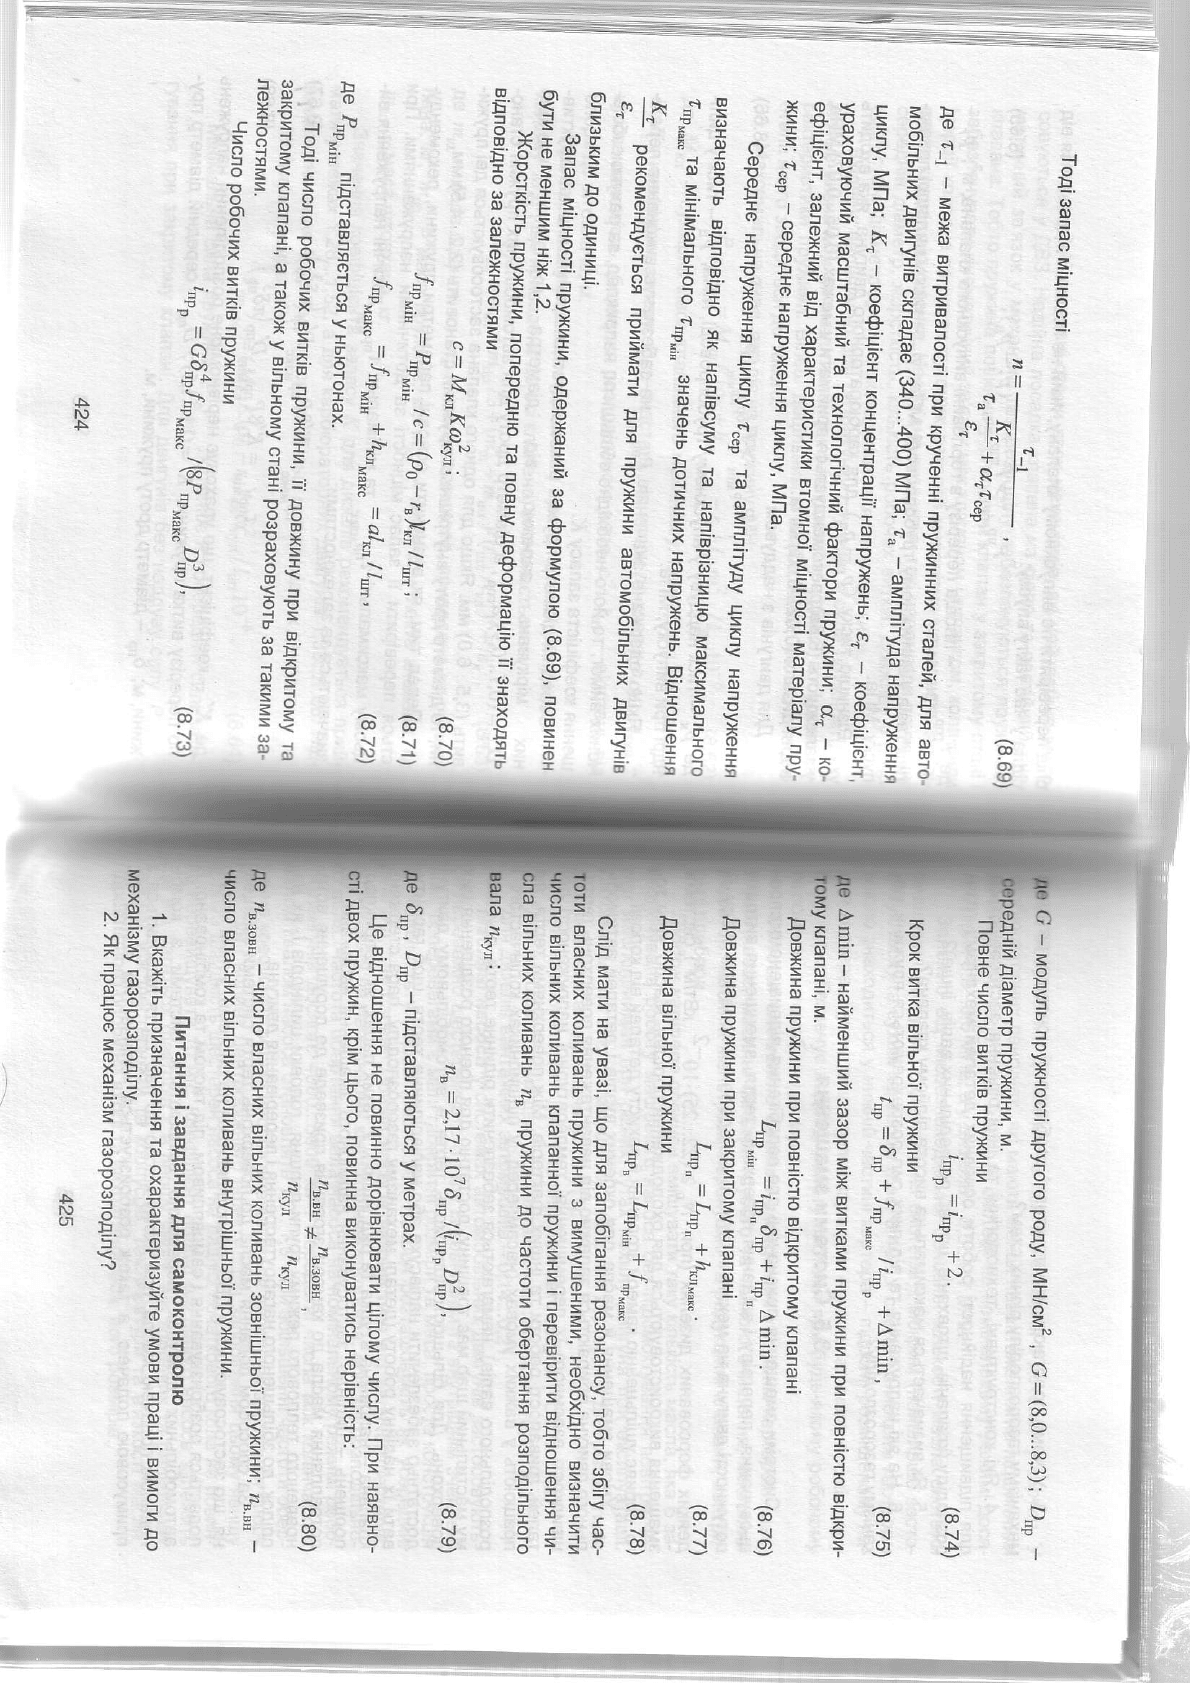 Тоді запас міцності
n = τ₋₁ / (τ_а K_τ/ε_τ + α_τ τ_сер) , (8.69)
де τ₋₁ – межа витривалості при крученні пружинних сталей, для авто-
мобільних двигунів складає (340...400) МПа; τ_а – амплітуда напруження
циклу, МПа; K_τ – коефіцієнт концентрації напружень; ε_τ – коефіцієнт,
ураховуючий масштабний та технологічний фактори пружини; α_τ – ко-
ефіцієнт, залежний від характеристики втомної міцності матеріалу пру-
жини; τ_сер – середнє напруження циклу, МПа.
Середнє напруження циклу τ_сер та амплітуду циклу напруження
визначають відповідно як напівсуму та напіврізницю максимального
τ_пр макс та мінімального τ_пр мін значень дотичних напружень. Відношення
K_τ/ε_τ рекомендується приймати для пружини автомобільних двигунів
близьким до одиниці.
Запас міцності пружини, одержаний за формулою (8.69), повинен
бути не меншим ніж 1,2.
Жорсткість пружини, попередню та повну деформацію її знаходять
відповідно за залежностями
c = M_кл K ω²_кул ; (8.70)
f_пр мін = P_пр мін / c = (ρ₀ – r_в) l_кл / l_шт ; (8.71)
f_пр макс = f_пр мін + h_кл макс = a l_кл / l_шт , (8.72)
де P_пр мін підставляється у ньютонах.
Тоді число робочих витків пружини, її довжину при відкритому та
закритому клапані, а також у вільному стані розраховують за такими за-
лежностями.
Число робочих витків пружини
i_пр р = Gδ⁴_пр f_пр макс / (8P_пр макс D³_пр), (8.73)
424
де G – модуль пружності другого роду, МН/см², G = (8,0...8,3) ; D_пр –
середній діаметр пружини, м.
Повне число витків пружини
i_пр р = i_пр р + 2 . (8.74)
Крок витка вільної пружини
t_пр = δ_пр + f_пр макс / i_пр р + Δ min , (8.75)
де Δ min – найменший зазор між витками пружини при повністю відкри-
тому клапані, м.
Довжина пружини при повністю відкритому клапані
L_пр мін = i_пр п δ_пр + i_пр п Δ min . (8.76)
Довжина пружини при закритому клапані
L_пр п = L_пр п + h_кл макс . (8.77)
Довжина вільної пружини
L_пр в = L_пр мін + f_пр макс . (8.78)
Слід мати на увазі, що для запобігання резонансу, тобто збігу час-
тоти власних коливань пружини з вимушеними, необхідно визначити
число вільних коливань клапанної пружини і перевірити відношення чи-
сла вільних коливань n_в пружини до частоти обертання розподільного
вала n_кул :
n_в = 2,17·10⁷ δ_пр / (i_пр р D²_пр), (8.79)
де δ_пр , D_пр – підставляються у метрах.
Це відношення не повинно дорівнювати цілому числу. При наявно-
сті двох пружин, крім цього, повинна виконуватись нерівність:
n_в.вн / n_кул ≠ n_в.зовн / n_кул , (8.80)
де n_в.зовн – число власних вільних коливань зовнішньої пружини; n_в.вн –
число власних вільних коливань внутрішньої пружини.
Питання і завдання для самоконтролю
1. Вкажіть призначення та охарактеризуйте умови праці і вимоги до
механізму газорозподілу.
2. Як працює механізм газорозподілу?
425